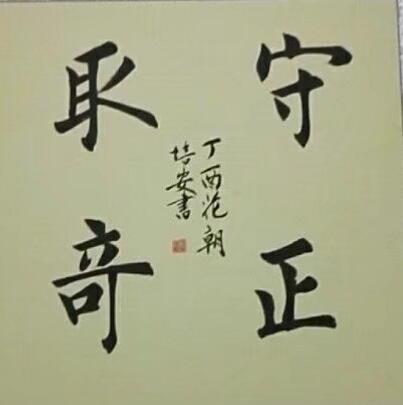 守正
取奇
丁酉花朝
培安書